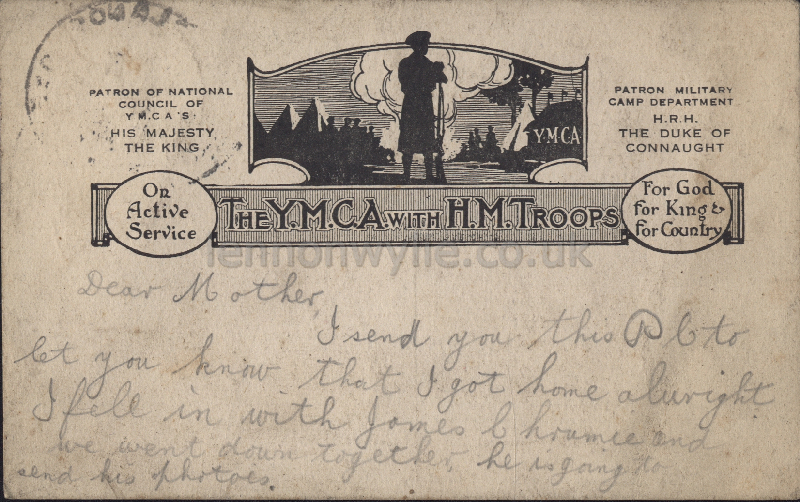 PATRON OF NATIONAL
COUNCIL OF
Y.M.C.A'S:
HIS MAJESTY
THE KING
PATRON MILITARY
CAMP DEPARTMENT
H.R.H.
THE DUKE OF
CONNAUGHT
Y.M.C.A
On
Active
Service
THE Y.M.C.A. WITH H.M. TROOPS
For God
For King &
For Country
lennonwylie.co.uk
Dear Mother
I send you this P C to
let you know that I got home aluright
I fell in with James and
we went down together he is gang to
send his photoes